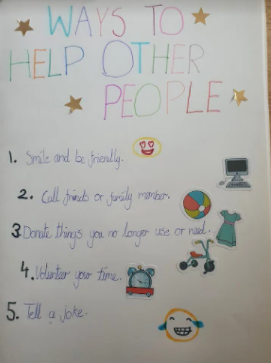 WAYS TO
HELP OTHER
PEOPLE
1. Smile and be friendly.
2. Call friends or family member.
3 Donate things you no longer use or need.
4. Volunteer your time.
5. Tell a joke.